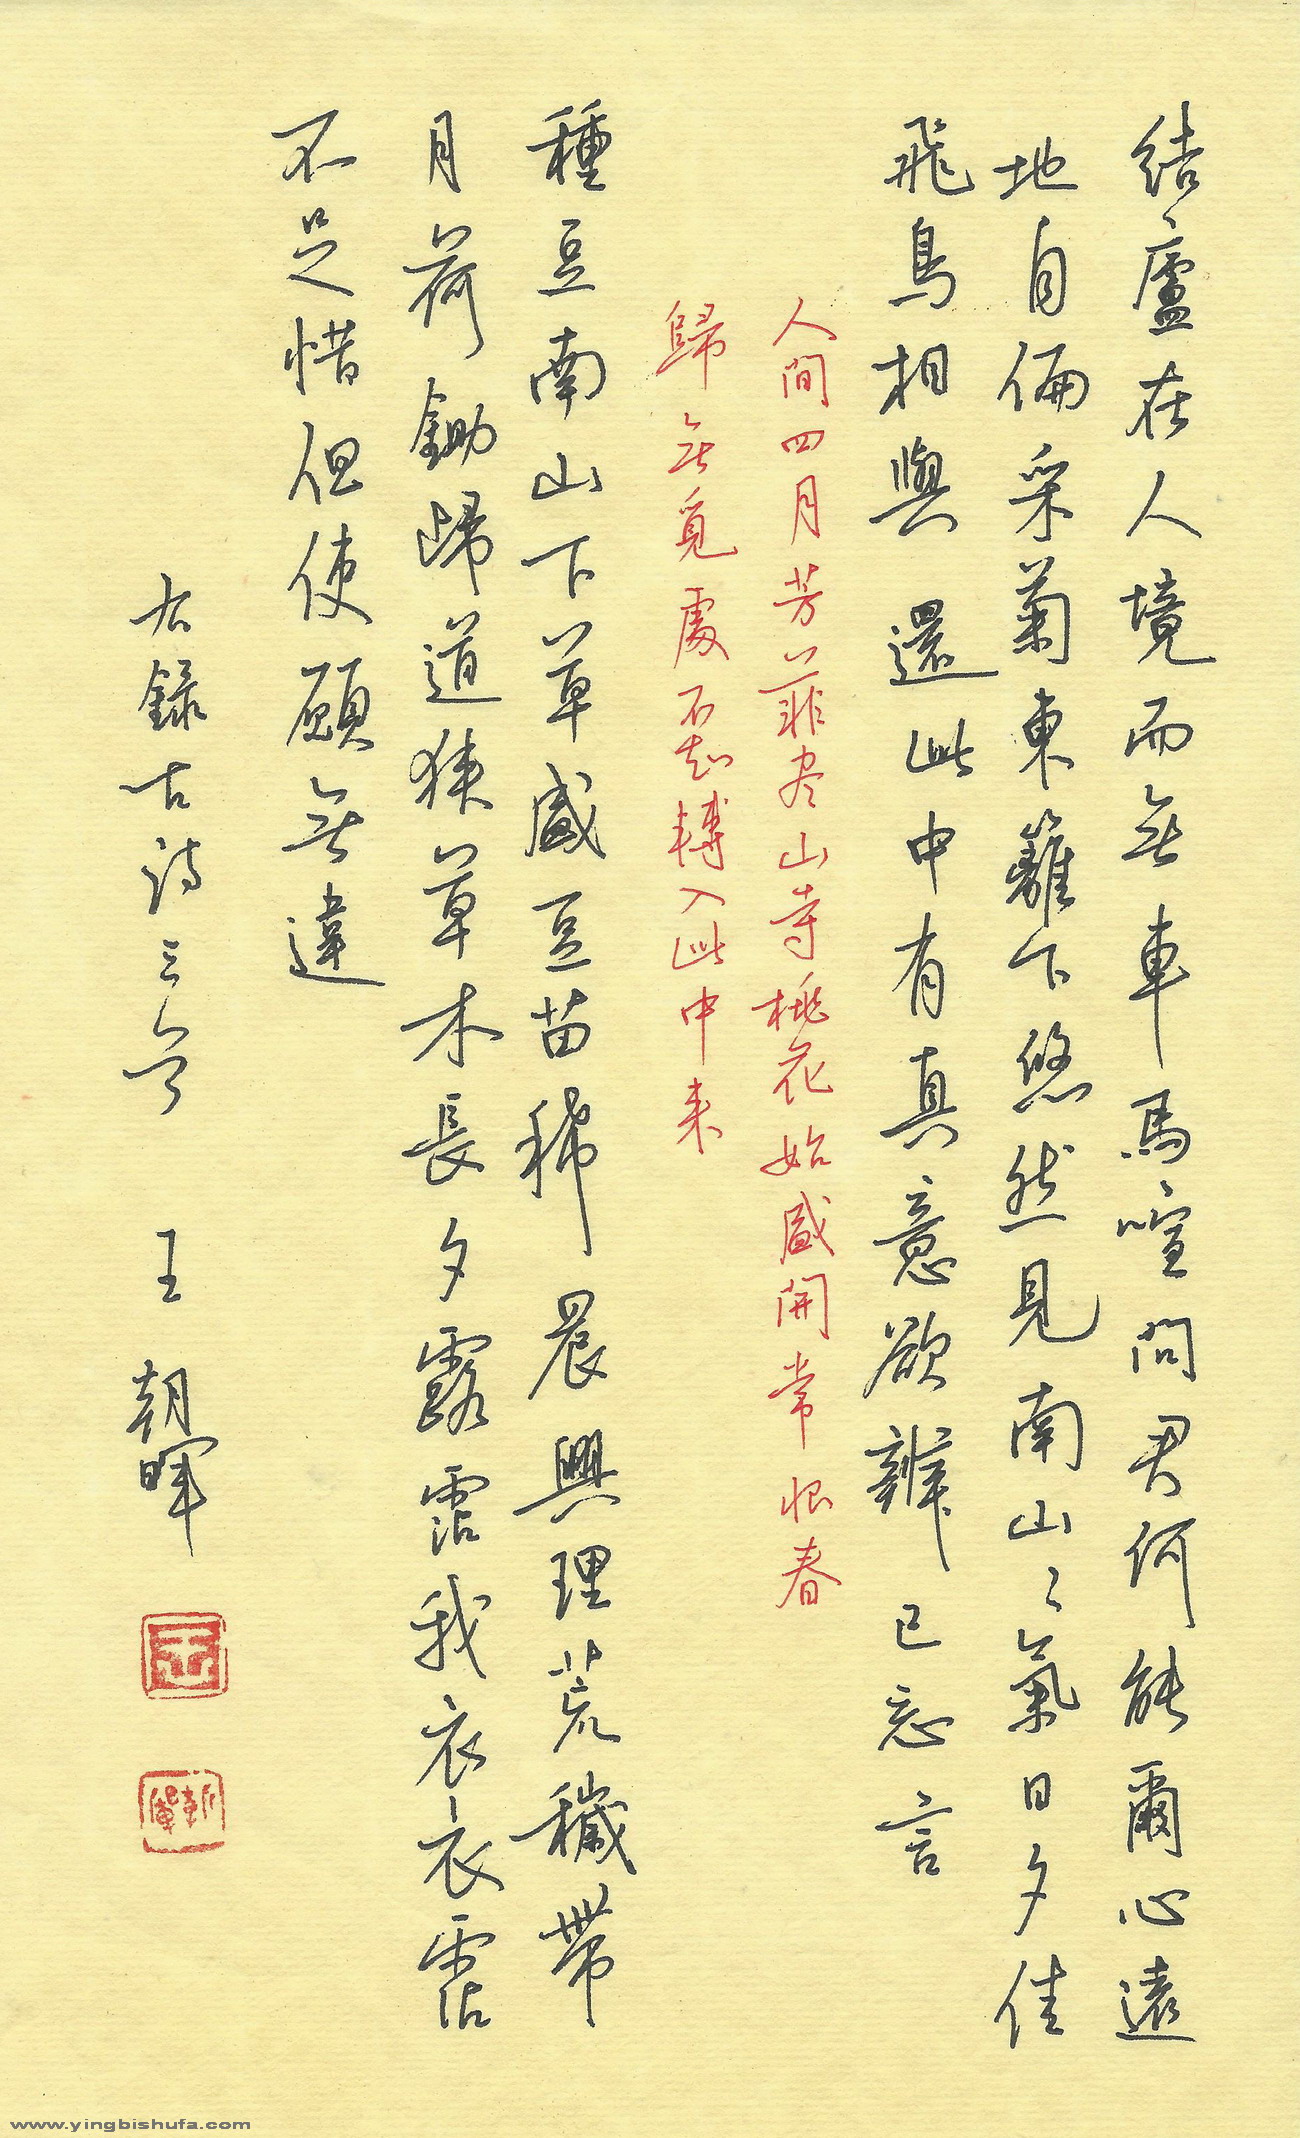 結廬在人境而无車馬喧問君何能爾心遠
地自偏采菊東籬下悠然見南山山氣日夕佳
飛鳥相與還此中有真意欲辨已忘言
人間四月芳菲尽山寺桃花始盛開常恨春
歸无覓處不知轉入此中来
種豆南山下草盛豆苗稀晨興理荒穢帶
月荷鋤歸道狹草木長夕露霑我衣衣霑
不足惜但使願无違
右録古詩三首 王朝暉
www.yingbishufa.com